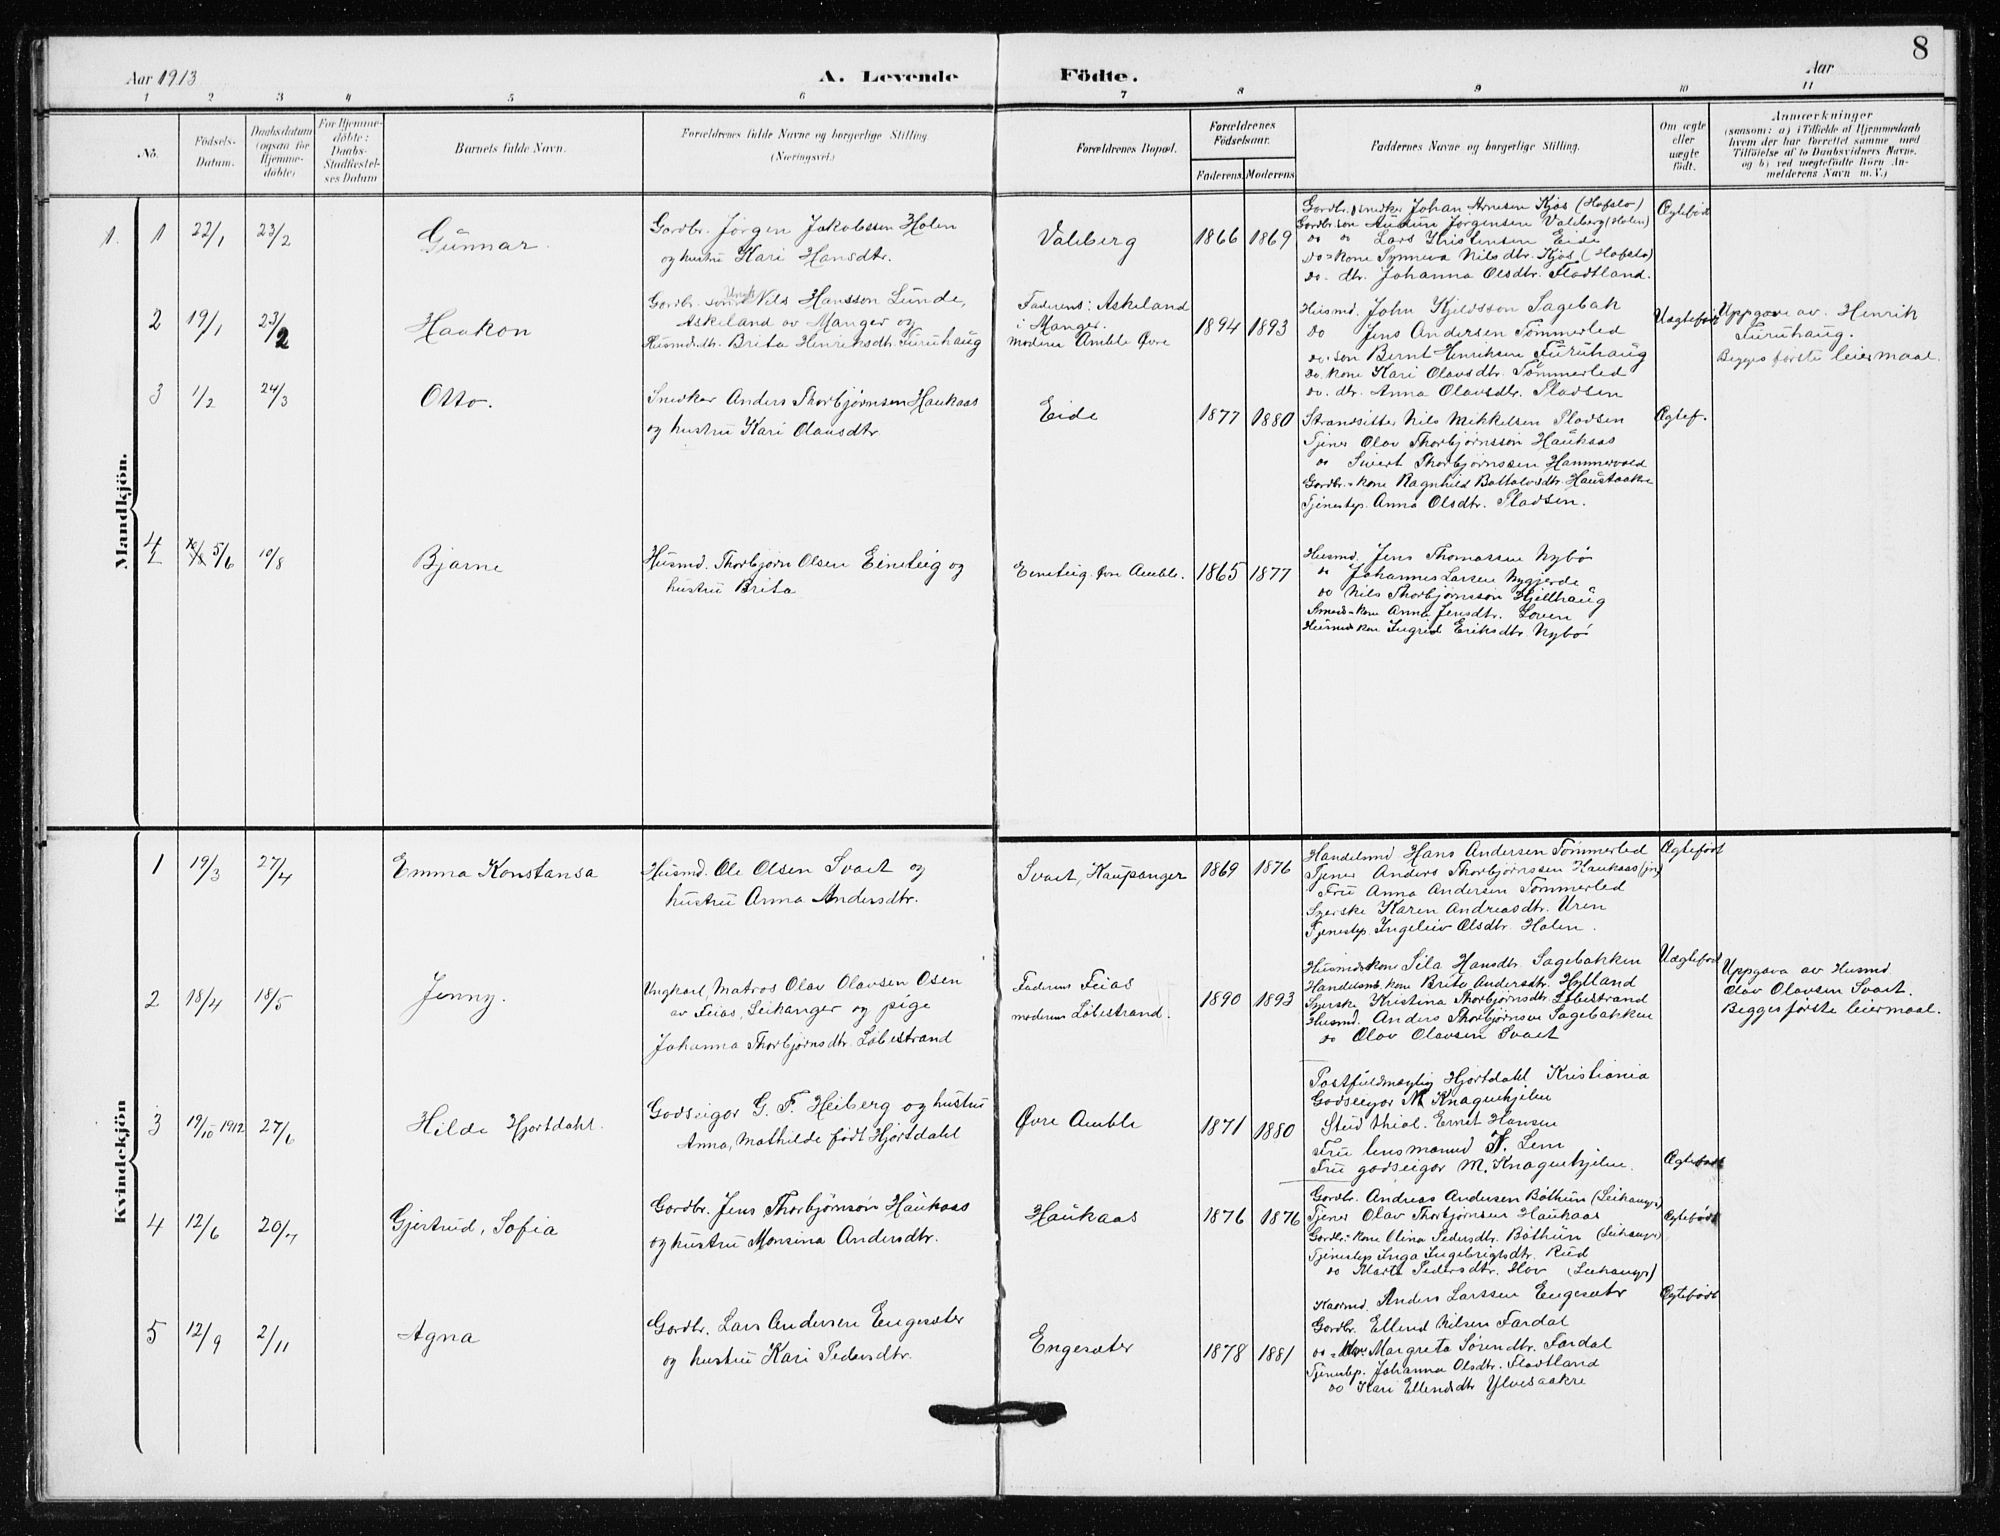 8
Aar 1913
A. Levende Födte.
Aar
1 2 3 4 5 6 7 8 9 10 11
No.
Födsels-Datum.
Daabsdatum (ogsaa for Hjemme-döbte)
For Hjemme-döbte: Daabs-Stadfæstel-ses Datum
Barnets fulde Navn.
Forældrenes fulde Navne og borgerlige Stilling.
(Næringsvei.)
Forældrenes Bopæl.
Forældrenes Födselsaar.
Faderens. Moderens
Faddernes Navne og borgerlige Stilling.
Om ægte eller uægte födt.
Anmærkninger
(saasom: a) i Tilfælde af Hjemmedaab
hvem der har forrettet samme med
Tilföielse af to Daabsvidners Navne,
og b) ved uægtefödte Börn An-
melderens Navn m. V.)
Mandkjön.
1. 1 22/1 23/2 Gunnar.
Gardbr. Jørgen Jakobssen Holen
og hustru Kari Hansdtr.
Valeberg 1866 1869
Gardbr. snedker Johan Arnesen Kjøs (Hofslo)
Gardbr. søn Audun Jørgensen Valeberg (Holen)
do do Lars Kristensen Eide
do - kone Synneva Nilsdtr. Kjøs (Hofslo)
do. dtr. Johanna Olsdtr. Flodtland.
Ægtefödt
2 19/1 23/2 Haakon
Gardbr. søn Ungk. Nils Hansson Lunde,
Askeland av Manger og
Husmd.dtr. Brita Henriksdtr. Furuhaug
Faderens: Askeland
i Manger.
moderen Amble Øvre
1894 1893
Husmd. John Kjeldsson Sagebak
do Jens Andersen Tømmerled
do. søn Bernt Henriksen Furuhaug
do. kone Kari Olavsdtr. Tømmerled
do. dtr. Anna Olavsdtr. Pladsen
Uægtefödt
Uppgave av Henrik
Furuhaug.
Begges første leiermaal.
3 1/2 24/3 Otto.
Snedker Anders Thorbjørnsen Haukaas
og hustru Kari Olavsdtr
Eide 1877 1880
Strandsitter Nils Mikkelsen Pladsen
Tjener Olav Thorbjørnsson Haukaas
do Sivert Thorbjørnssen Hammervold
Gardbr.-kone Ragnhild Bottolvsdtr. Haustaakre
Tjenestep. Anna Olsdtr. Pladsen.
Ægtef.
4 5/6 10/8 Bjarne
Husmd. Thorbjørn Olsen Einsteig og
hustru Brita
Einsteig. Øvre Amble. 1865 1877
Husmd. Jens Thomassen Nybø
do Johannes Larsen Nygjerde
do Nils Thorbjørnsson Hjellhaug
Smeds-kone Anna Jensdtr. Loven
Husmdskone Ingrid Eriksdtr. Nybø
Kvindekjön
1 19/3 27/4 Emma Konstansa
Husmd. Ole Olsen Svaet og
hustru Anna Andersdtr.
Svaet, Kaupanger 1869 1876
Handelsmd Hans Andersen Tømmerled
Tjener Anders Thorbjørnssen Haukaas (jr)
Fru Anna Andersen Tømmerled
Syerske Karen Andreasdtr. Uren
Tjenestep. Ingeleiv Olsdtr. Holen.
Ægtefödt
2 18/4 18/5 Jenny.
Ungkarl, Matros Olav Olavsen Osen
av Feios, Leikanger og pige
Johanna Thorbjørnsdtr. Løbestrand
Faderens Feios
moderens Løbestrand.
1890 1893
Husmdskone Sila Hansdtr. Sagebakken
Handelsmd. kone Brita Andersdtr. Hylland
Syerske Kristina Thorbjørnsdtr. Løbestrand
Husmd. Anders Thorbjørnsen Sagebakken
do Olav Olavsen Svaet
Uægtefödt
Uppgava av Husmd.
Olav Olavsen Svaet.
Begges første leiermaal.
3 19/10 1912 27/6 Hilde Hjortdahl.
Godseigor G. F. Heiberg og hustru
Anna, Mathilde født Hjortdahl
Øvre Amble 1871 1880
Postfuldmægtig Hjortdahl Kristiania
Godseigor M Knagenhjelm
Stud thiol. Ernst Hansen
Fru lensmannd Lem
Fru godseigor M. Knagenhjelm.
Ægtefödt
4 12/6 20/7 Gjertrud, Sofia
Gardbr. Jens Thorbjørnson Haukaas
og hustru Monsina Andersdtr.
Haukaas 1876 1876
Gardbr. Andreas Andersen Bøthun (Leikanger)
Tjener Olav Thorbjørnsen Haukaas
Gardbr.-kone Olina Pedersdtr. Bøthun (Leikanger)
Tjenestep Inga Ingebrigtsdtr. Rud
do Marta Pedersdtr. Hov (Leikanger)
Ægtefödt
5 12/9 2/11 Agna
Gardbr. Lars Andersen Engesæter
og hustru Kari Pedersdtr.
Engesæter 1878 1881
Kaarmd. Anders Larssen Engesætr
Gardbr. Ellend Nilsen Fardal
do - kone Margreta Sørendtr. Fardal
Tjenestep. Johanna Olsdtr. Flodtland
do Kari Ellendsdtr Ylvesaakre
Ægtefödt